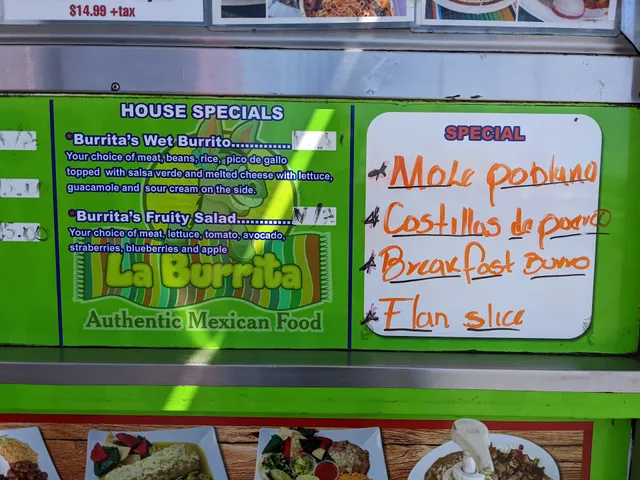 $14.99 +tax
HOUSE SPECIALS
*Burrita's Wet Burrito..............
Your choice of meat, beans, rice, pico de gallo
topped with salsa verde and melted cheese with lettuce,
guacamole and sour cream on the side.
*Burrita's Fruity Salad.............
Your choice of meat, lettuce, tomato, avocado,
straberries, blueberries and apple
La Burrita
Authentic Mexican Food
SPECIAL
* Mole poblano
* Costillas de puerco
* Breakfast Burro
* Flan slice